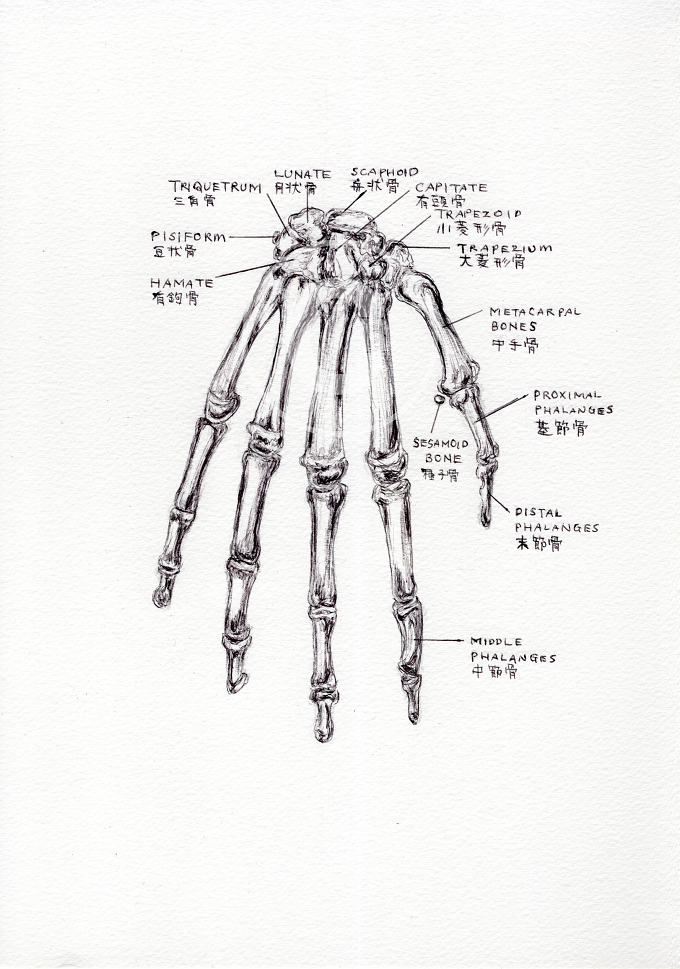 LUNATE
月状骨
SCAPHOID
舟状骨
TRIQUETRUM
三角骨
CAPITATE
有頭骨
TRAPEZOID
小菱形骨
PISIFORM
豆状骨
TRAPEZIUM
大菱形骨
HAMATE
有鈎骨
METACARPAL
BONES
中手骨
PROXIMAL
PHALANGES
基節骨
SESAMOID
BONE
種子骨
DISTAL
PHALANGES
末節骨
MIDDLE
PHALANGES
中節骨